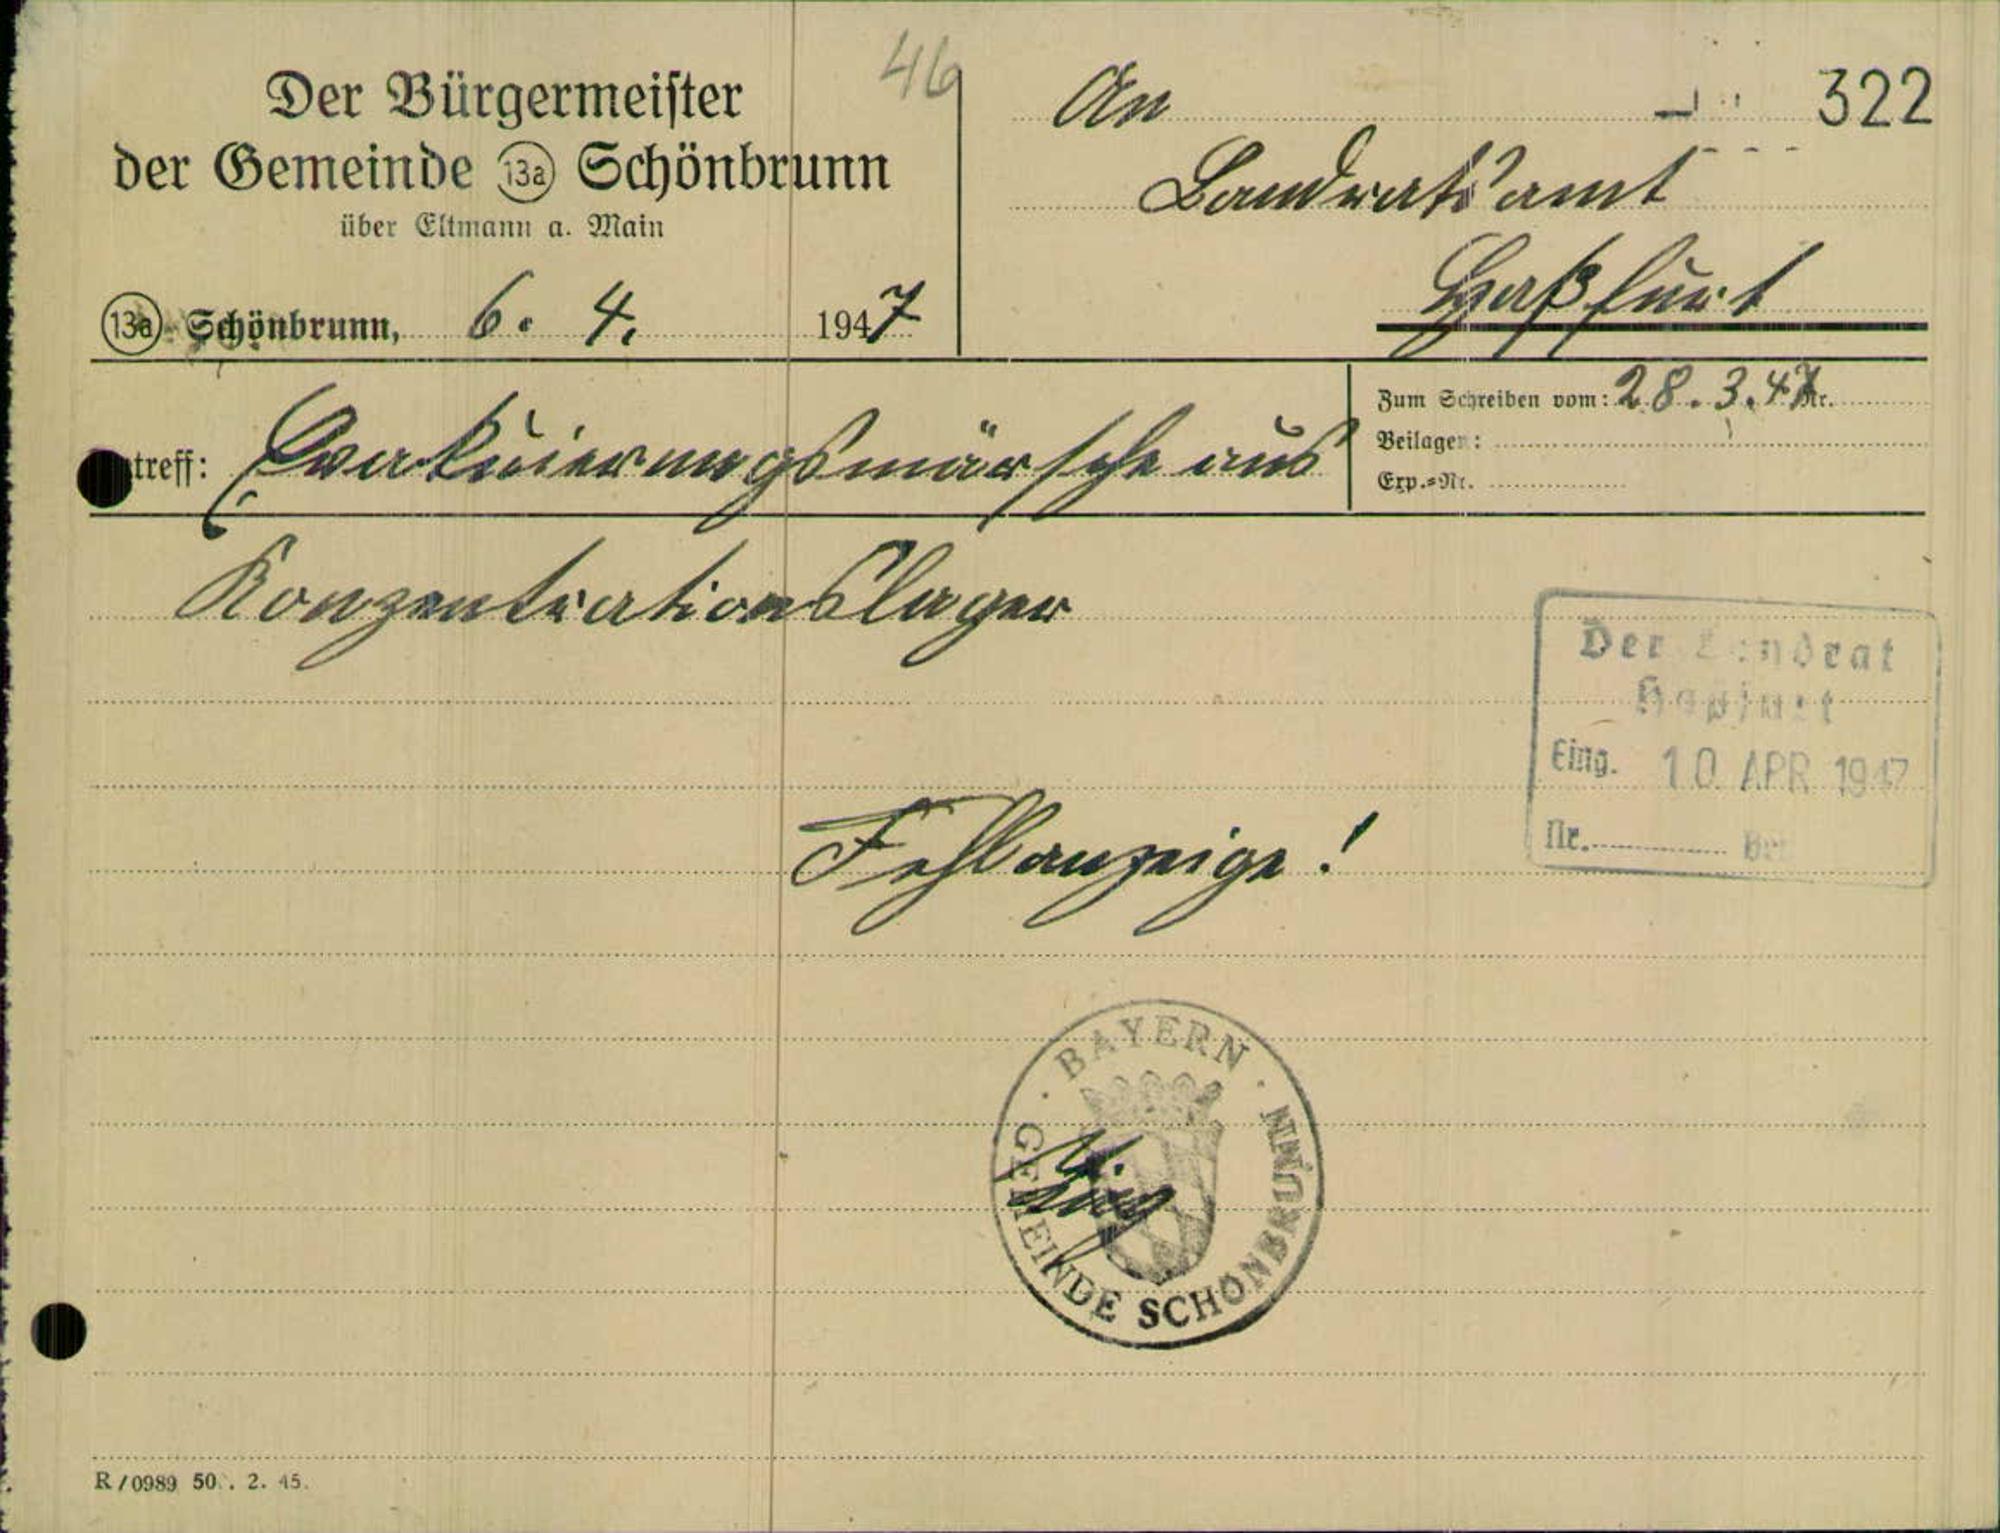 46
322
Der Bürgermeister
der Gemeinde 13a Schönbrunn
über Eltmann a. Main
13a Schönbrunn, 6. 4. 1947
An
Landratsamt
Haßfurt
Zum Schreiben vom: 28.3.47 Nr.
Beilagen:
Exp.=Nr.
treff: Evakuierungsmärsche aus
Konzentrationslager
Der Landrat
Haßfurt
Eing. 10. APR 1947
Nr.
Fehlanzeige!
BAYERN
GEMEINDE SCHÖNBRUNN
R/0989 50. . 2. 45.